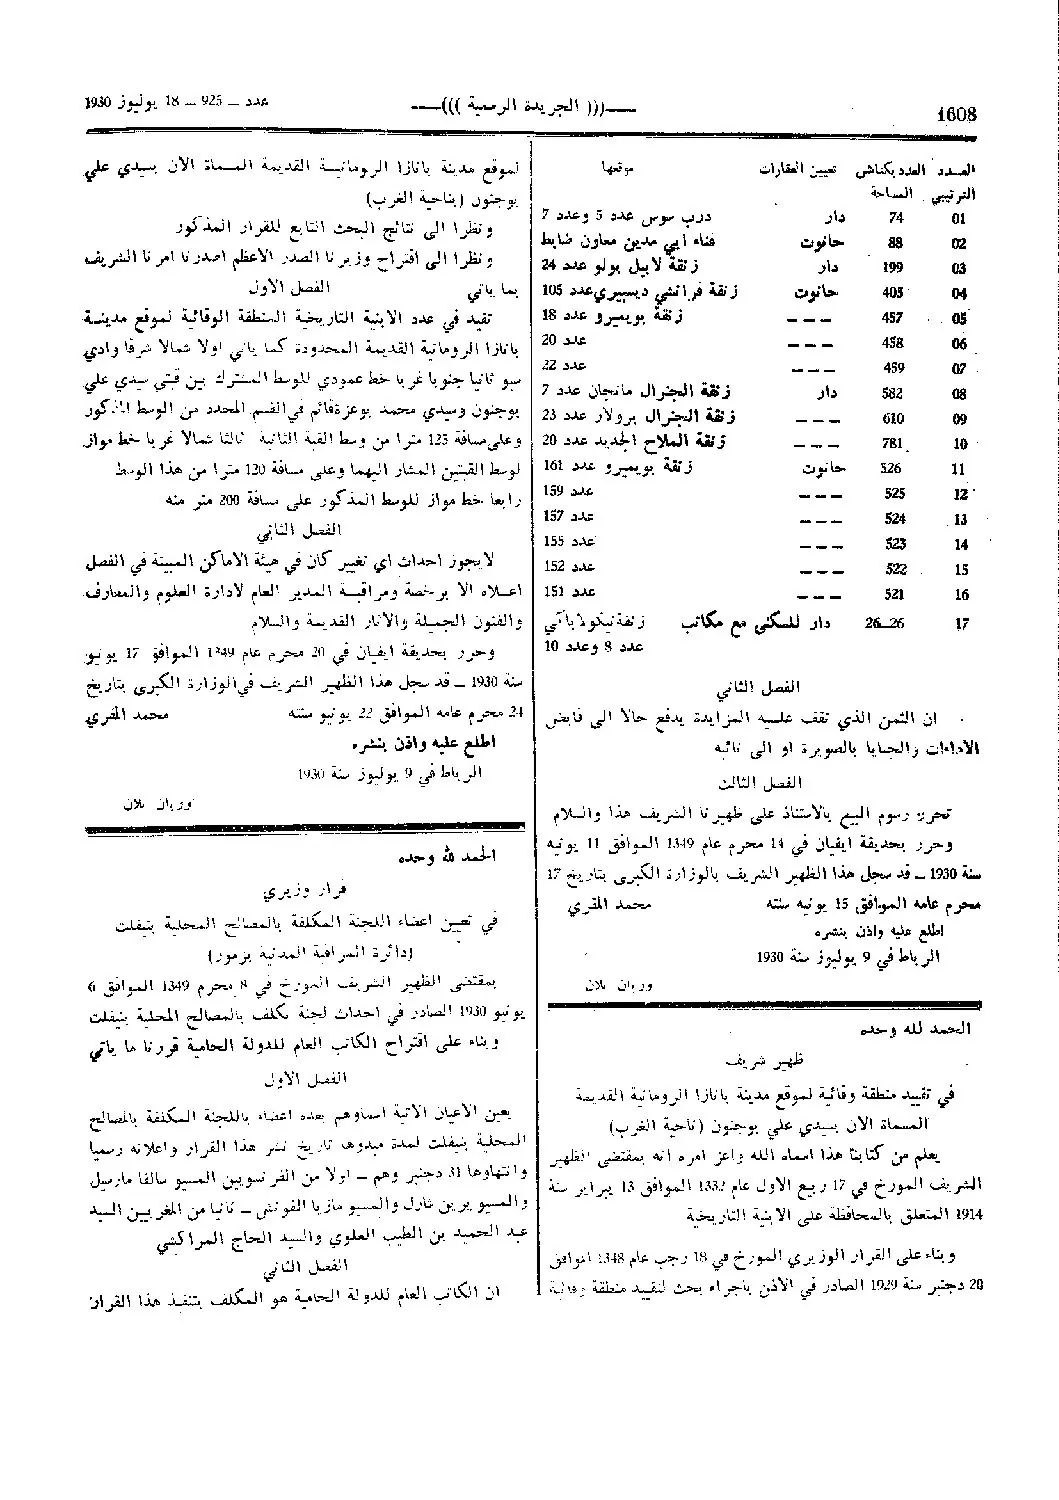 1608
—((( الجريدة الرسمية )))—
عدد – 925 – 18 يوليوز 1930
العدد العدد بكناش تعيين العقارات موقعها
الترتيبي المساحة
01 74 دار درب سوس عدد 5 وعدد 7
02 88 حانوت فناء ابي مدين معاون ضابط
03 199 دار زنقة لابيل بولو عدد 24
04 405 حانوت زنقة فرانشي ديسبيري عدد 105
05 457 – – – زنقة بويميرو عدد 18
06 458 – – – عدد 20
07 459 – – – عدد 22
08 582 دار زنقة الجنرال مانجان عدد 7
09 610 – – – زنقة الجنرال برولار عدد 23
10 781 – – – زنقة الملاح الجديد عدد 20
11 526 حانوت زنقة بويميرو عدد 161
12 525 – – – عدد 159
13 524 – – – عدد 157
14 523 – – – عدد 155
15 522 – – – عدد 152
16 521 – – – عدد 151
17 26–26 دار للسكنى مع مكاتب زنقة نيكولا باكي
عدد 8 وعدد 10
الفصل الثاني
ان الثمن الذي تقف عليه المزايدة يدفع حالا الى قابض
الاداءات والجبايا بالصويرة او الى نائبه
الفصل الثالث
تحرر رسوم البيع بالاستناد على ظهيرنا الشريف هذا والسلام
وحرر بحديقة ايفيان في 14 محرم عام 1349 الموافق 11 يونيه
سنة 1930 – قد سجل هذا الظهير الشريف بالوزارة الكبرى بتاريخ 17
محرم عامه الموافق 15 يونيه سنته محمد المقري
اطلع عليه واذن بنشره
الرباط في 9 يوليوز سنة 1930
وربان بلان
الحمد لله وحده
ظهير شريف
في تقييد منطقة وقائية لموقع مدينة بانازا الرومانية القديمة
المسماة الان بسيدي علي بوجنون (ناحية الغرب)
يعلم من كتابنا هذا اسماه الله واعز امره انه بمقتضى الظهير
الشريف المورخ في 17 ربيع الاول عام 1332 الموافق 13 يبراير سنة
1914 المتعلق بالمحافظة على الابنية التاريخية
وبناء على القرار الوزيري المورخ في 18 رجب عام 1348 الموافق
20 دجنبر سنة 1929 الصادر في الاذن باجراء بحث لتقييد منطقة وقائية
لموقع مدينة بانازا الرومانية القديمة المسماة الان بسيدي علي
بوجنون (بناحية الغرب)
ونظرا الى نتائج البحث التابع للقرار المذكور
ونظرا الى اقتراح وزيرنا الصدر الاعظم اصدرنا امرنا الشريف
بما ياتي الفصل الاول
تقيد في عدد الابنية التاريخية المنطقة الوقائية لموقع مدينة
بانازا الرومانية القديمة المحدودة كما ياتي اولا شمالا شرقا وادي
سبو ثانيا جنوبا غربا خط عمودي للوسط المشترك بين قبتي سيدي علي
بوجنون وسيدي محمد بوعزة قائم في القسم المحدد من الوسط المذكور
وعلى مسافة 125 مترا من وسط القبة الثانية ثالثا شمالا غربا خط مواز
لوسط القبتين المشار اليهما وعلى مسافة 120 مترا من هذا الوسط
رابعا خط مواز للوسط المذكور على مسافة 200 متر منه
الفصل الثاني
لا يجوز احداث اي تغيير كان في هيئة الاماكن المبينة في الفصل
اعلاه الا برخصة ومراقبة المدير العام لادارة العلوم والمعارف
والفنون الجميلة والاثار القديمة والسلام
وحرر بحديقة ايفيان في 20 محرم عام 1349 الموافق 17 يونيو
سنة 1930 – قد سجل هذا الظهير الشريف في الوزارة الكبرى بتاريخ
24 محرم عامه الموافق 22 يونيو سنته محمد المقري
اطلع عليه واذن بنشره
الرباط في 9 يوليوز سنة 1930
وربان بلان
الحمد لله وحده
قرار وزيري
في تعيين اعضاء اللجنة المكلفة بالمصالح المحلية بتيفلت
(دائرة المراقبة المدنية بزمور)
بمقتضى الظهير الشريف المورخ في 8 محرم 1349 الموافق 6
يونيو 1930 الصادر في احداث لجنة تكلف بالمصالح المحلية بتيفلت
وبناء على اقتراح الكاتب العام للدولة الحامية قررنا ما ياتي
الفصل الاول
يعين الاعيان الاتية اسماوهم بعده اعضاء باللجنة المكلفة بالمصالح
المحلية بتيفلت لمدة مبدوها تاريخ نشر هذا القرار واعلانه رسميا
وانتهاوها 31 دجنبر وهم – اولا من الفرنسويين المسيو سالفا مارسيل
والمسيو برين شارل والمسيو ماريا الفونس – ثانيا من المغربيين السيد
عبد الحميد بن الطيب العلوي والسيد الحاج المراكشي
الفصل الثاني
ان الكاتب العام للدولة الحامية هو المكلف بتنفيذ هذا القرار